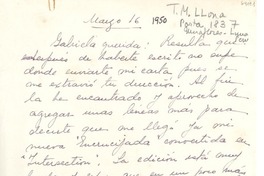 Marzo 16 1950
T. M. LLona
Porta 183 7
Miraflores - Lima
Gabriela querida: Resulta que
después de haberte escrito no supe
donde enviarte mi carta pues se
me extravió tu dirección. Al fin
la he encontrado y aprovecho de
agregar unas líneas más para
decirte que me llegó ya mi
nueva "Encrucijada" convertida en
"Intersection". La edición está muy